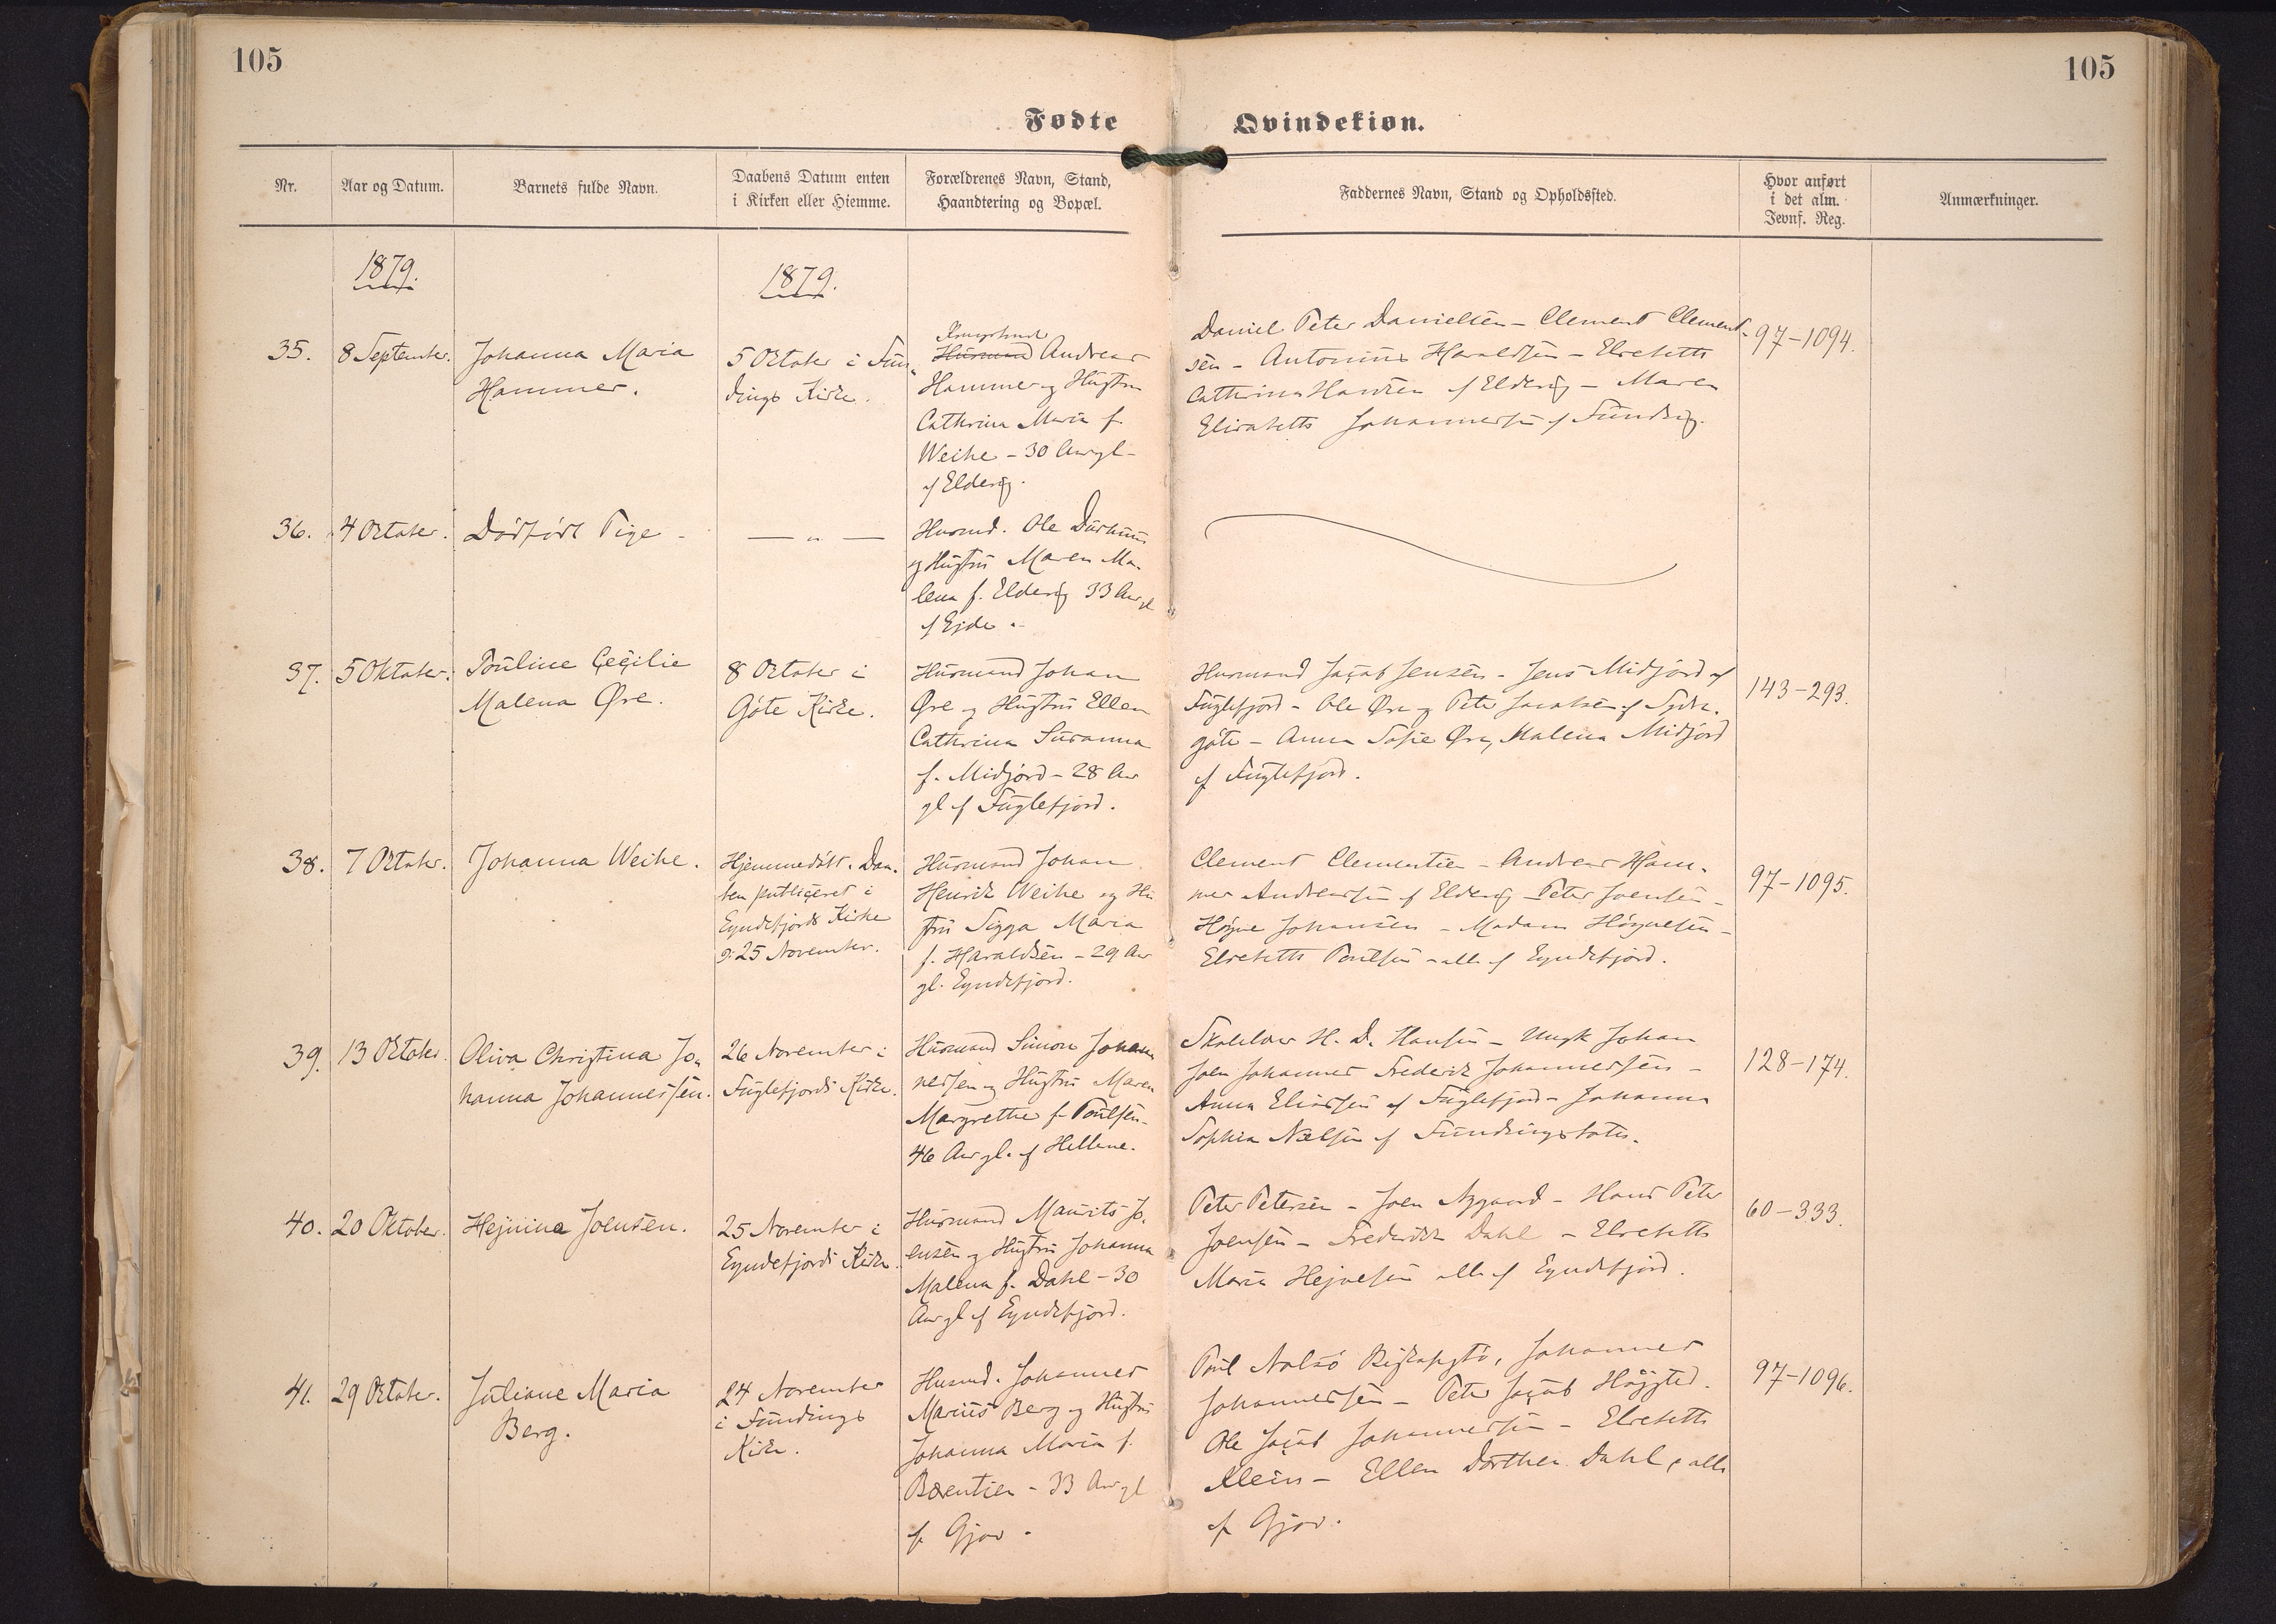 105
105
Fødte
Qvindekiøn.
Nr.
Aar og Datum.
Barnets fulde Navn.
Daabens Datum enten
i Kirken eller Hiemme.
Forældrenes Navn, Stand,
Haandtering og Bopæl.
Faddernes Navn, Stand og Opholdssted.
Hvor anført
i det alm.
Jevnf. Reg.
Anmærkninger.
1879.
1879.
35.
8 September.
Johanna Maria
Hammer.
5 Oktober i Fun-
dings Kirke.
Husmand Andreas
Hammer og Hustru
Cathrina Maria f.
Weihe - 30 Aar gl -
af Eldevig.
Daniel Peter Danielsen - Clement Clement-
sen - Antonius Haraldsen - Elsebeth
Cathrina Hansen af Eldevig - Maren
Elisabeth Johannessen af Funding.
97-1094.
36.
4 Oktober.
Dødfødt Pige -
— " —
Husmd. Ole
og Hustru Maren Ma-
lena f. Eldevig 33 Aar gl
af Ejde.
37.
5 Oktober.
Pouline Cecilie
Malena Øre.
8 Oktober i
Gøte Kirke.
Husmand Johan
Øre og Hustru Ellen
Cathrina Susanna
f. Midjord - 28 Aar
gl af Fuglefjord.
Husmand Jacob Jensen - Jens Midjord af
Fuglefjord - Ole Øre og Peter Jacobsen af Sydr.
gøte - Anna Sofie Øre, Malena Midjord
af Fuglefjord.
143-293.
38.
7 Oktober.
Johanna Weihe.
Hjemmedøbt. Daa-
ben publiceret i
Eyndefjords Kirke
d: 25 November.
Husmand Johan
Henrik Weihe og Hu
stru Sigga Maria
f. Haraldsen - 29 Aar
gl. Eyndefjord.
Clement Clementsen - Andreas Ham-
mer Andreassen af Eldevig Peter Joensen -
Høgne Johansen - Madam Høgnesen -
Elsebeth Poulsen - alle af Eyndefjord.
97-1095.
39.
13 Oktober.
Oliva Christina Jo-
hanna Johannessen.
26 November i
Fuglefjords Kirke.
Husmand Simon Johan
nessen og Hustru Maren
Margrethe f. Poulsen -
46 Aar gl. af Hellene.
H. D. Hansen - Ungk Johan
Joen Johannes Frederik Johannessen -
Anna Eliassen af Fuglefjord - Johanna
Sophia Nielsen af Fundingsbotn.
128-174.
40.
20 Oktober.
Hejnina Joensen.
25 November i
Eyndefjords Kirke.
Husmand Maurits Jo-
ensen og Hustru Johanna
Malena f. Dahl - 30
Aar gl af Eyndefjord.
Peter Petersen - Joen Nygaard - Hans Peter
Joensen - Frederikk Dahl - Elsebeth
Maria Hejnesen alle af Eyndefjord.
60-333.
41.
29 Oktober.
Juliane Maria
Berg.
24 November
i Fundings
Kirke.
Husmd. Johannes
Marius Berg og Hustru
Johanna Maria f.
Bærentsen - 33 Aar gl
af Gjov.
Poul Nolsø Johannes
Johannessen - Peter Jacob Højgsted.
Ole Jacob Johannessen - Elsebeth
Klein - Ellen Dorthea Dahl, alle
af Gjov.
97-1096.